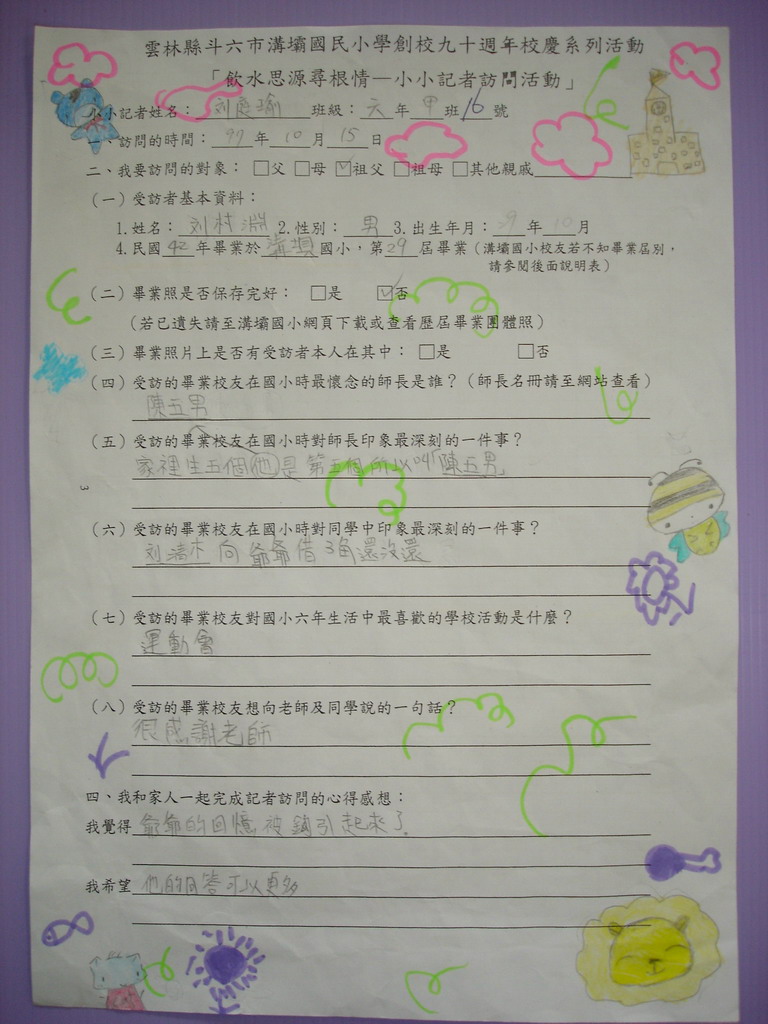 雲林縣斗六市溝壩國民小學創校九十週年校慶系列活動
「飲水思源尋根情—小小記者訪問活動」
小小記者姓名：刘庭瑜 班級：六年甲班16號
一、訪問的時間：97年10月15日
二、我要訪問的對象：□父 □母 ☑祖父 □祖母 □其他親戚
（一）受訪者基本資料：
1.姓名：刘村淵 2.性別：男 3.出生年月：29年10月
4.民國42年畢業於溝壩國小，第29屆畢業（溝壩國小校友若不知畢業屆別，
請參閱後面說明表）
（二）畢業照是否保存完好：□是 ☑否
（若已遺失請至溝壩國小網頁下載或查看歷屆畢業團體照）
（三）畢業照片上是否有受訪者本人在其中：□是 □否
（四）受訪的畢業校友在國小時最懷念的師長是誰？（師長名冊請至網站查看）
陳五男
（五）受訪的畢業校友在國小時對師長印象最深刻的一件事？
家裡生五個他是第五個所以叫「陳五男」
3
（六）受訪的畢業校友在國小時對同學中印象最深刻的一件事？
刘清木向爺爺借3角還沒還
（七）受訪的畢業校友對國小六年生活中最喜歡的學校活動是什麼？
運動會
（八）受訪的畢業校友想向老師及同學說的一句話？
很感謝老師
四、我和家人一起完成記者訪問的心得感想：
我覺得爺爺的回憶被鉤引起來了.
我希望他的回答可以更多